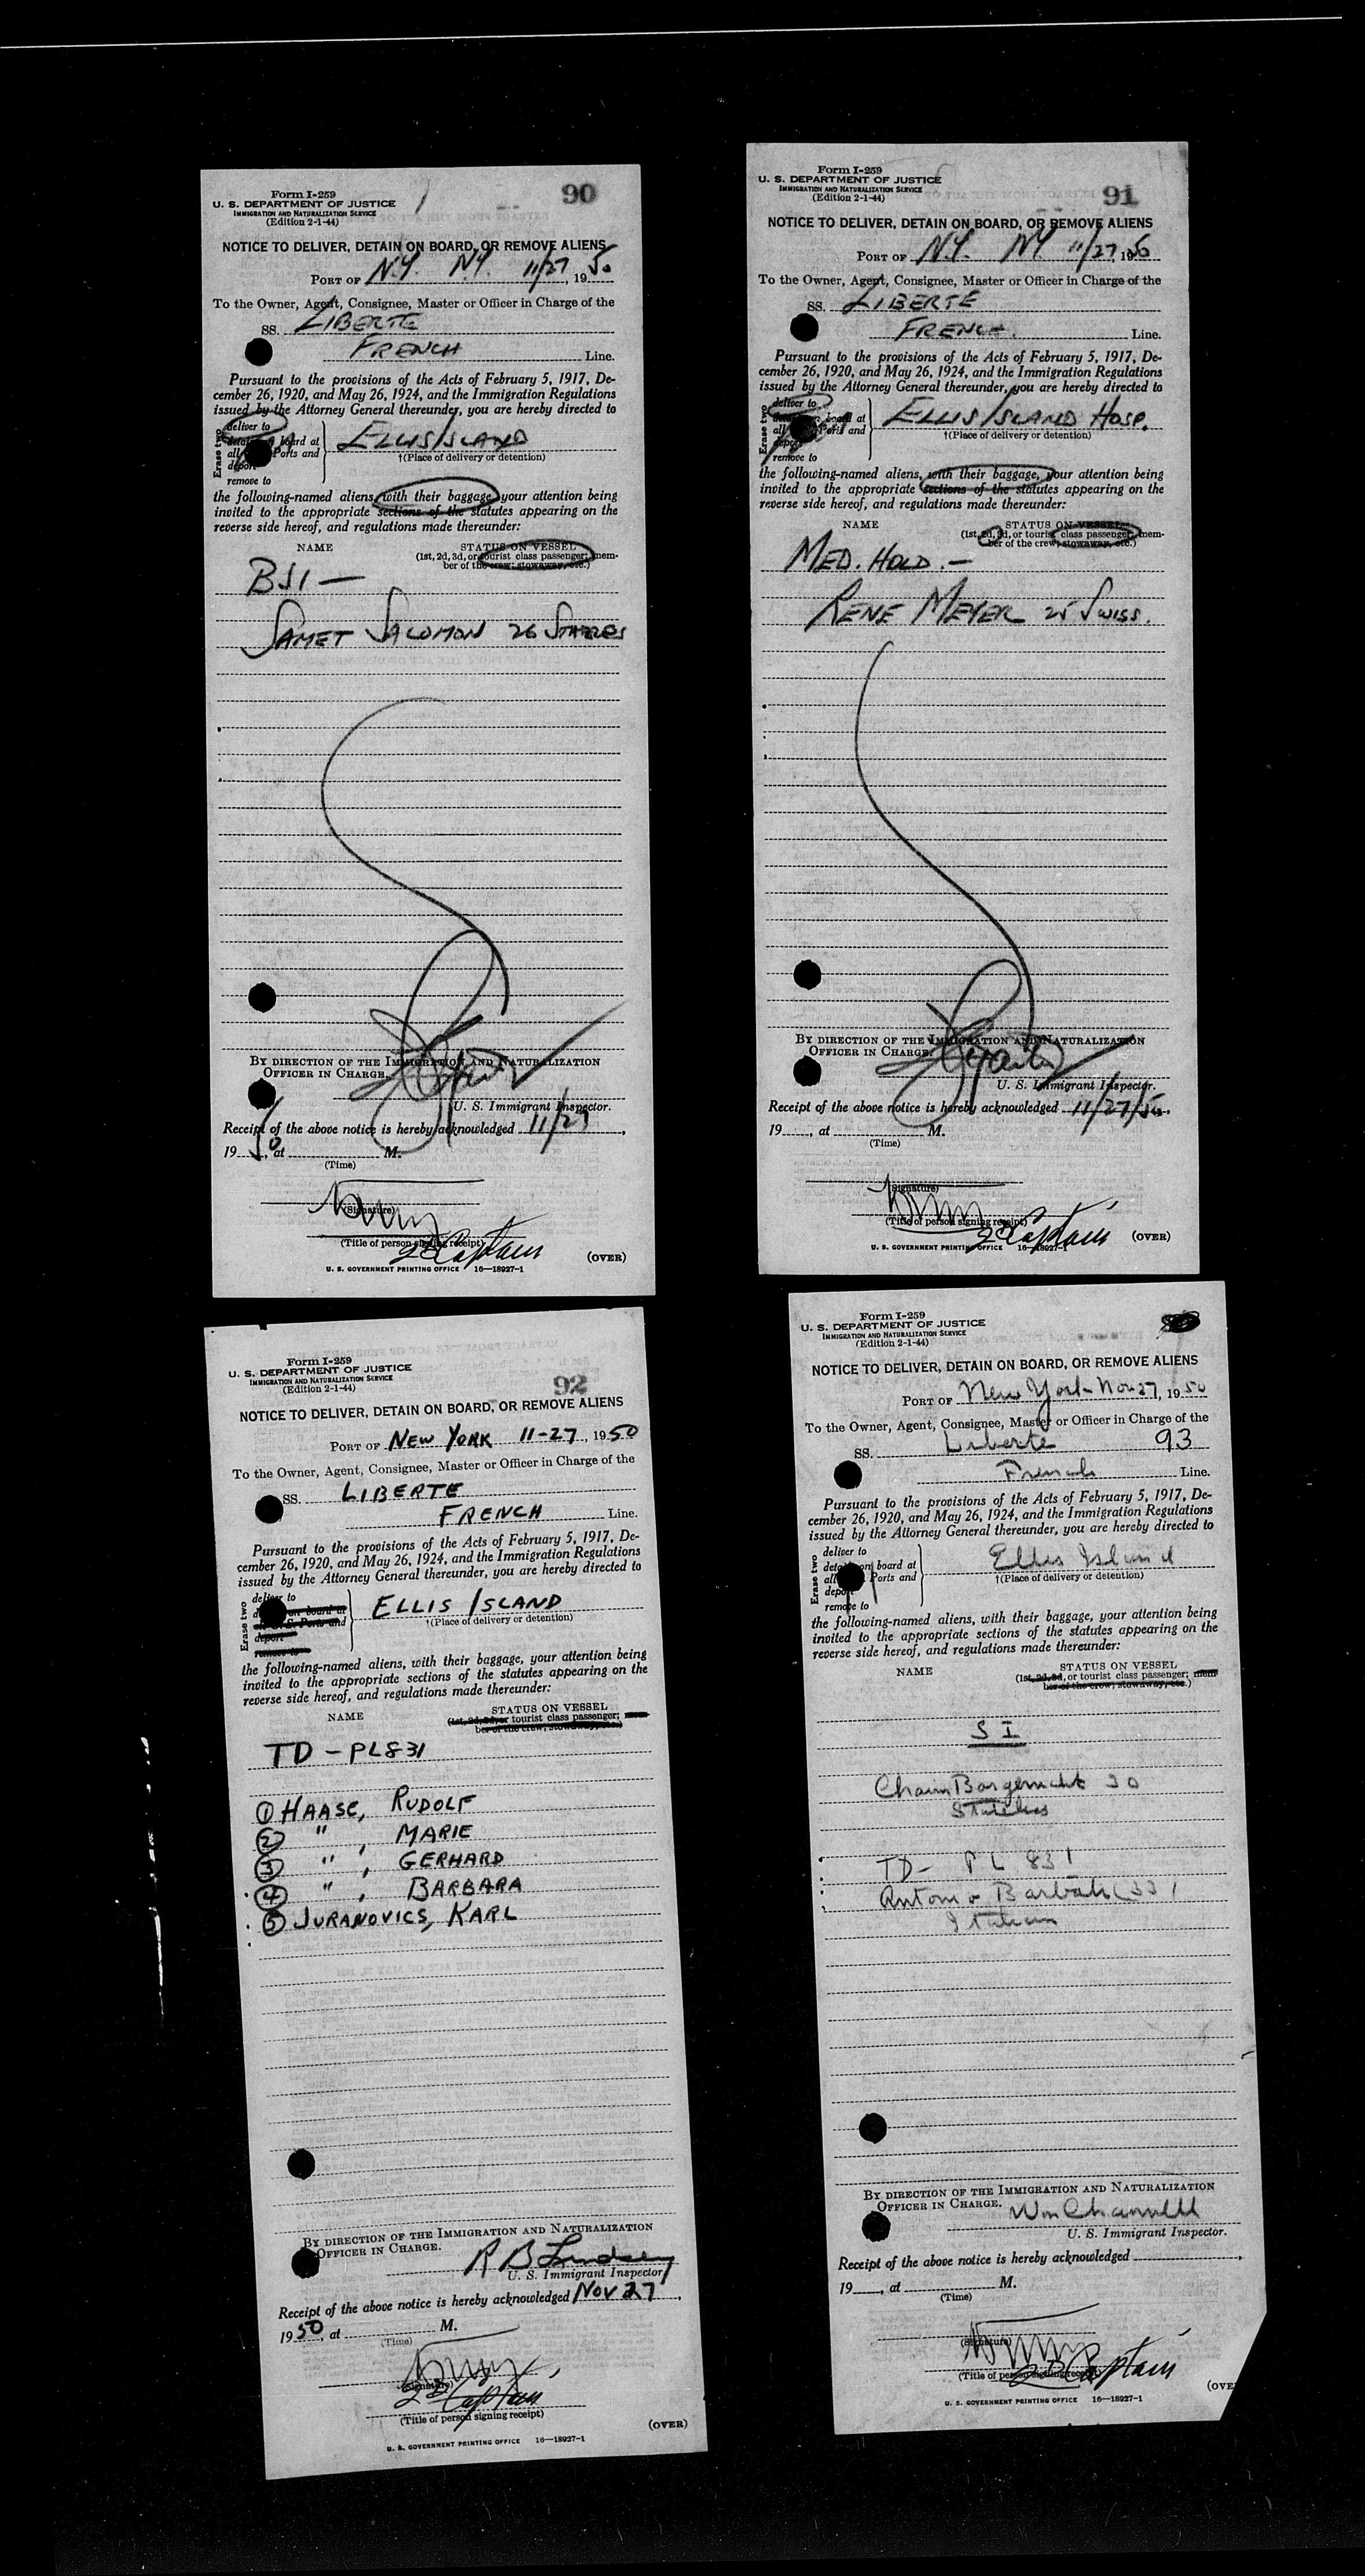 Form I-259
U. S. DEPARTMENT OF JUSTICE
IMMIGRATION AND NATURALIZATION SERVICE
(Edition 2-1-44)
90
NOTICE TO DELIVER, DETAIN ON BOARD, OR REMOVE ALIENS
PORT OF N.Y. N.Y. 11/27, 1950
To the Owner, Agent, Consignee, Master or Officer in Charge of the
SS. LIBERTE
FRENCH Line.
Pursuant to the provisions of the Acts of February 5, 1917, De-
cember 26, 1920, and May 26, 1924, and the Immigration Regulations
issued by the Attorney General thereunder, you are hereby directed to
Erase two
deliver to
board at
all Ports and
deport
remove to
ELLIS ISLAND
†(Place of delivery or detention)
the following-named aliens, with their baggage, your attention being
invited to the appropriate sections of the statutes appearing on the
reverse side hereof, and regulations made thereunder:
NAME STATUS ON VESSEL
(1st, 2d, 3d, or tourist class passenger; mem-
ber of the crew; stowaway, etc.)
BSI —
SAMET SALOMON 26
BY DIRECTION OF THE IMMIGRATION AND NATURALIZATION
OFFICER IN CHARGE.
U. S. Immigrant Inspector.
Receipt of the above notice is hereby acknowledged 11/27,
1950, at M.
(Time)
(Signature)
2d Captain
(Title of person signing receipt)
(OVER)
U. S. GOVERNMENT PRINTING OFFICE 16—18927-1
Form I-259
U. S. DEPARTMENT OF JUSTICE
IMMIGRATION AND NATURALIZATION SERVICE
(Edition 2-1-44)
91
NOTICE TO DELIVER, DETAIN ON BOARD, OR REMOVE ALIENS
PORT OF N.Y. NY 11/27, 1950
To the Owner, Agent, Consignee, Master or Officer in Charge of the
SS. LIBERTE
FRENCH. Line.
Pursuant to the provisions of the Acts of February 5, 1917, De-
cember 26, 1920, and May 26, 1924, and the Immigration Regulations
issued by the Attorney General thereunder, you are hereby directed to
Erase two
deliver to
board at
all Ports and
deport
remove to
ELLIS ISLAND HOSP.
†(Place of delivery or detention)
the following-named aliens, with their baggage, your attention being
invited to the appropriate sections of the statutes appearing on the
reverse side hereof, and regulations made thereunder:
NAME STATUS ON VESSEL
(1st, 2d, 3d, or tourist class passenger; mem-
ber of the crew; stowaway, etc.)
MED. HOLD. —
RENE MEYER 25 SWISS.
BY DIRECTION OF THE IMMIGRATION AND NATURALIZATION
OFFICER IN CHARGE.
U. S. Immigrant Inspector.
Receipt of the above notice is hereby acknowledged 11/27/50.,
19, at M.
(Time)
(Signature)
(Title of person signing receipt)
2d Captain
(OVER)
U. S. GOVERNMENT PRINTING OFFICE 16—18927-1
Form I-259
U. S. DEPARTMENT OF JUSTICE
IMMIGRATION AND NATURALIZATION SERVICE
(Edition 2-1-44)
92
NOTICE TO DELIVER, DETAIN ON BOARD, OR REMOVE ALIENS
PORT OF NEW YORK 11-27, 1950
To the Owner, Agent, Consignee, Master or Officer in Charge of the
SS. LIBERTE
FRENCH Line.
Pursuant to the provisions of the Acts of February 5, 1917, De-
cember 26, 1920, and May 26, 1924, and the Immigration Regulations
issued by the Attorney General thereunder, you are hereby directed to
Erase two
deliver to
on board at
U. S. Ports and
deport
remove to
ELLIS ISLAND
†(Place of delivery or detention)
the following-named aliens, with their baggage, your attention being
invited to the appropriate sections of the statutes appearing on the
reverse side hereof, and regulations made thereunder:
NAME STATUS ON VESSEL
(1st, 2d, 3d, or tourist class passenger; mem-
ber of the crew; stowaway, etc.)
TD - PL831
① HAASE, RUDOLF
② " , MARIE
③ " , GERHARD
④ " , BARBARA
⑤ JURANOVICS, KARL
BY DIRECTION OF THE IMMIGRATION AND NATURALIZATION
OFFICER IN CHARGE.
R B Lindsey
U. S. Immigrant Inspector
Receipt of the above notice is hereby acknowledged NOV 27,
1950, at M.
(Time)
(Signature)
2d Captain
(Title of person signing receipt)
(OVER)
U. S. GOVERNMENT PRINTING OFFICE 16—18927-1
Form I-259
U. S. DEPARTMENT OF JUSTICE
IMMIGRATION AND NATURALIZATION SERVICE
(Edition 2-1-44)
NOTICE TO DELIVER, DETAIN ON BOARD, OR REMOVE ALIENS
PORT OF New York - Nov 27, 1950
To the Owner, Agent, Consignee, Master or Officer in Charge of the
SS. Liberte 93
French Line.
Pursuant to the provisions of the Acts of February 5, 1917, De-
cember 26, 1920, and May 26, 1924, and the Immigration Regulations
issued by the Attorney General thereunder, you are hereby directed to
Erase two
deliver to
detain on board at
all Ports and
deport
remove to
Ellis Island
†(Place of delivery or detention)
the following-named aliens, with their baggage, your attention being
invited to the appropriate sections of the statutes appearing on the
reverse side hereof, and regulations made thereunder:
NAME STATUS ON VESSEL
(1st, 2d, 3d, or tourist class passenger; mem-
ber of the crew; stowaway, etc.)
S I
Chaim 30
TD - PL 831
Antonio 33
Italian
BY DIRECTION OF THE IMMIGRATION AND NATURALIZATION
OFFICER IN CHARGE.
U. S. Immigrant Inspector.
Receipt of the above notice is hereby acknowledged ,
19, at M.
(Time)
(Signature)
(Title of person signing receipt)
2d Captain
(OVE
U. S. GOVERNMENT PRINTING OFFICE 16—18927-1